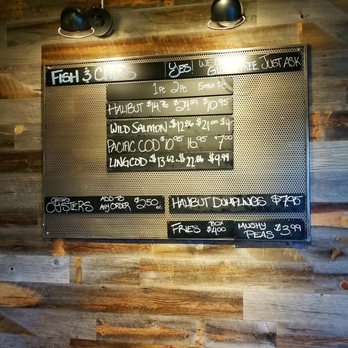 FISH & CHIPS
YES! WE
FREE JUST ASK
1PC 2PC EXTRA PC
HALIBUT $14.76 $24.99 $10.95
WILD SALMON $12.86 $21.00 $9
PACIFIC COD $10.95 16.95 7.00
LINGCOD $13.62 $22.86 $9.99
OYSTERS ADD TO ANY ORDER $2.50
HALIBUT DUMPLINGS $7.95
FRIES BOX $4.00
MUSHY PEAS $3.99